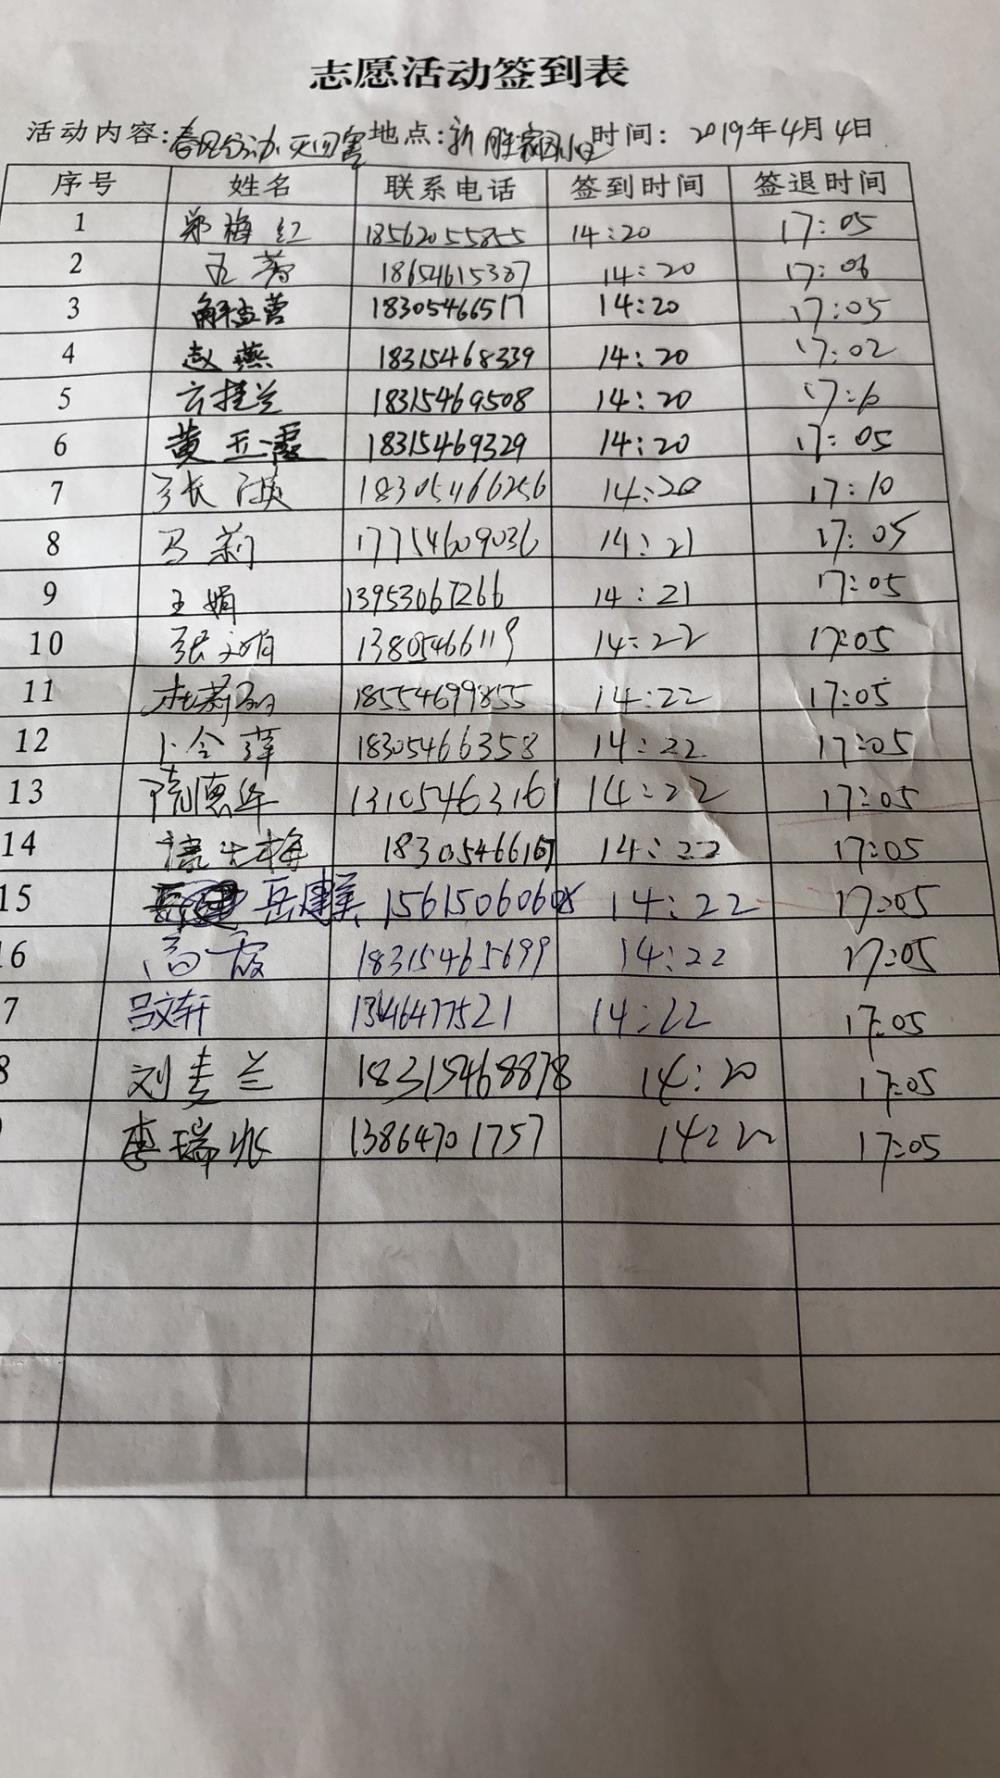 志愿活动签到表
活动内容: 地点: 新胜家园小区 时间: 2019年4月4日
序号 姓名 联系电话 签到时间 签退时间
1 郑梅红 18562055855 14:20 17:05
2 18654615387 14:20 17:06
3 解孟营 18305466517 14:20 17:05
4 赵燕 18315468339 14:20 17:02
5 18315469508 14:20 17:6
6 黄玉霞 18315469329 14:20 17:05
7 18305466256 14:20 17:10
8 马莉 17754609036 14:21 17:05
9 王娟 13953067266 14:21 17:05
10 张文娟 13805466119 14:22 17:05
11 18554699855 14:22 17:05
12 18305466358 14:22 17:05
13 13105463161 14:22 17:05
14 18305466167 14:22 17:05
15 岳建美 15615060605 14:22 17:05
6 高霞 18315465699 14:22 17:05
7 吕文轩 1346477521 14:22 17:05
8 刘圭兰 18315468878 14:20 17:05
李瑞兆 13864701757 14:22 17:05